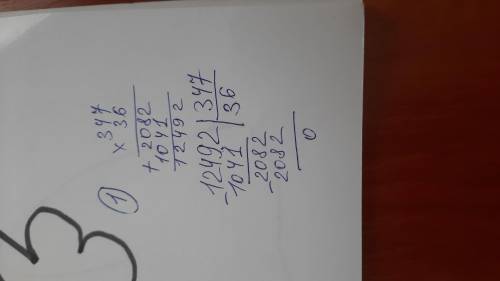 3
1
× 347
36
+ 2082
1041
12492
- 12492 | 347
1041 | 36
- 2082
2082
0